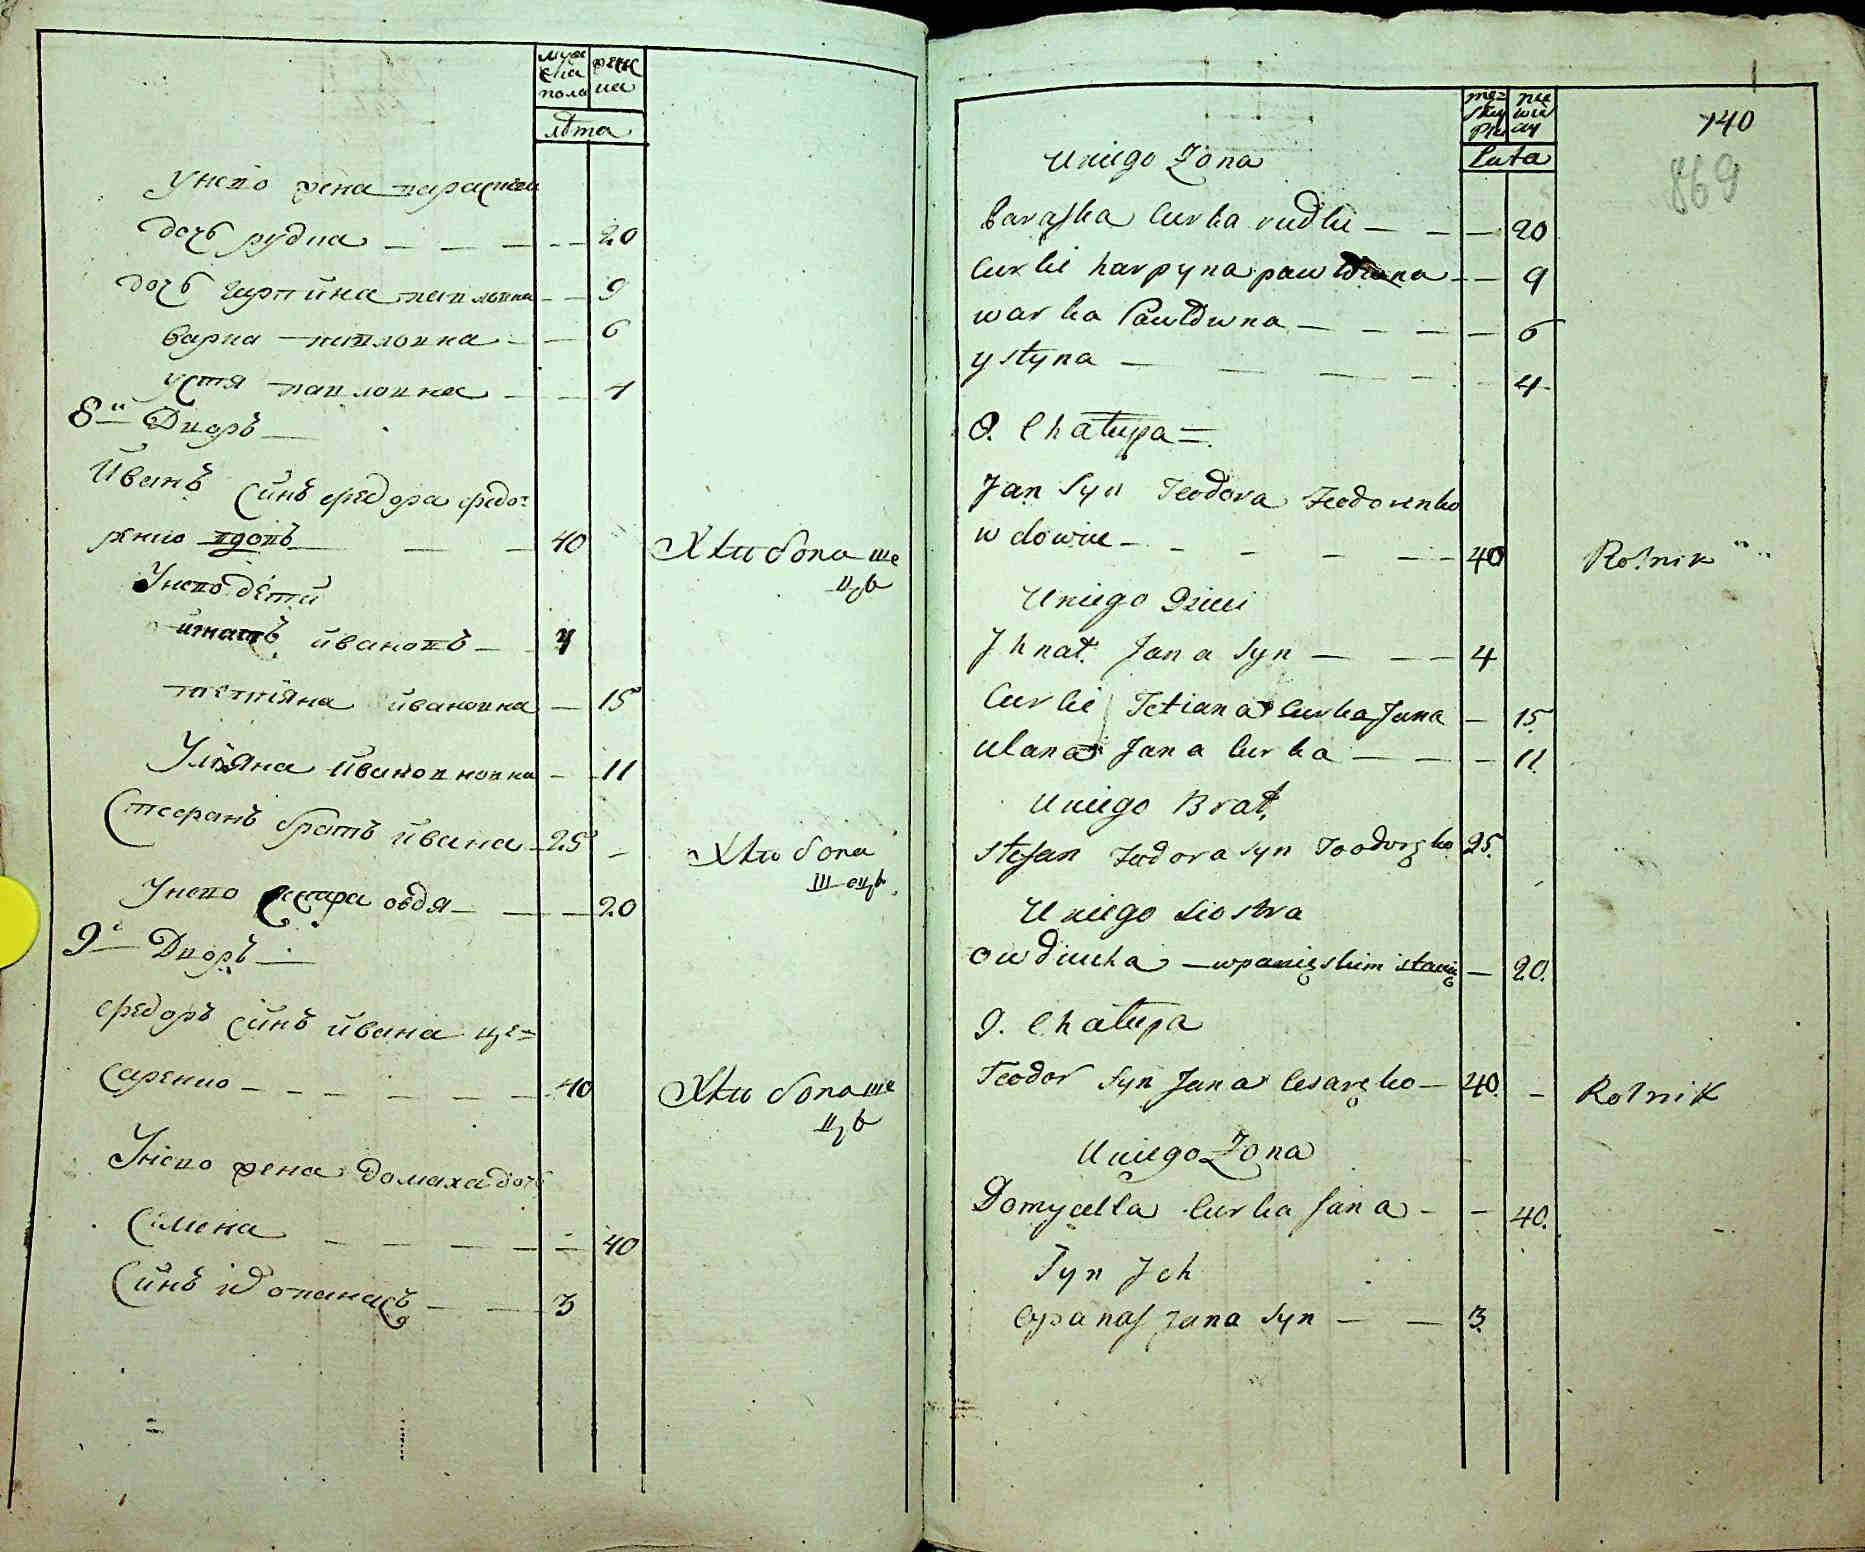 муже
ска
пола
женс
ка
лѣта
унего жена параскева
дочь рудка — — — — — 20
дочь гарпина павловна — — 9
варка павловна — — 6
устя павловна — — 4
8й Дворъ —
Иванъ синъ федора федо=
ренко вдовъ — — — 40
Хлѣбопашецъ
Унего дети
игнатъ ивановъ — 4
тетіяна ивановна — 15
Уліяна ивановновна — 11
Стефанъ братъ ивана — 25 —
Хлѣбопашецъ
Унего сестра овдя — — — 20
9й Дворъ —
федоръ синъ ивана це=
саренко — — — — — — 40
Хлѣбопашецъ
Унего жена домаха дочь
Семена — — — — — — 40
Синъ их опанасъ — — 3
140
869
mę=
sky
Płci
Lata
Uniego Zona
Paraska Curka rudki — — — 20
Curki harpyna pawłowna — — 9
warka Pawłowna — — — — 6
ystyna — — — — — 4
8. Chatupa =
Jan Syn Teodora Teodorenko
wdowiec — — — — — — 40
Rolnik
Uniego Dzieci
Jhnat. Jana Syn — — — 4
Curki Tetiana Curka Jana — 15.
Ulana Jana Curka — — — 11.
Uniego Brat,
Stefan Teodora syn 25.
Uniego Siostra
owdiucha — — 20.
9. Chatupa
Teodor Syn Jana Cesaręko — 40. —
Rolnik
Uniego Zona
Domycella Curka Jana — — 40.
Syn Jch
Opanas Jana Syn — — 3.